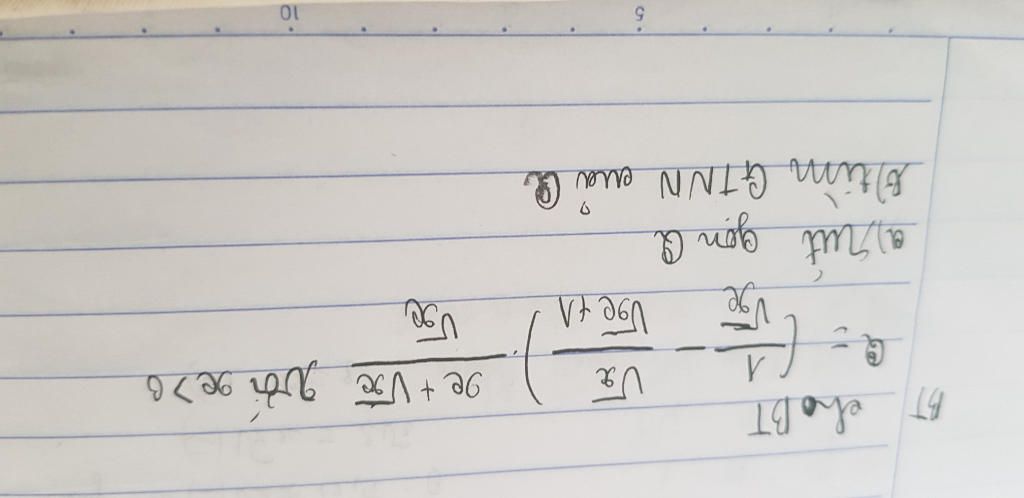 BT
cho BT
Q = ( 1/√x − √x/(√x+1) ) . (x+√x)/√x với x>0
a) rút gọn Q
b) tìm GTNN của Q
5 10